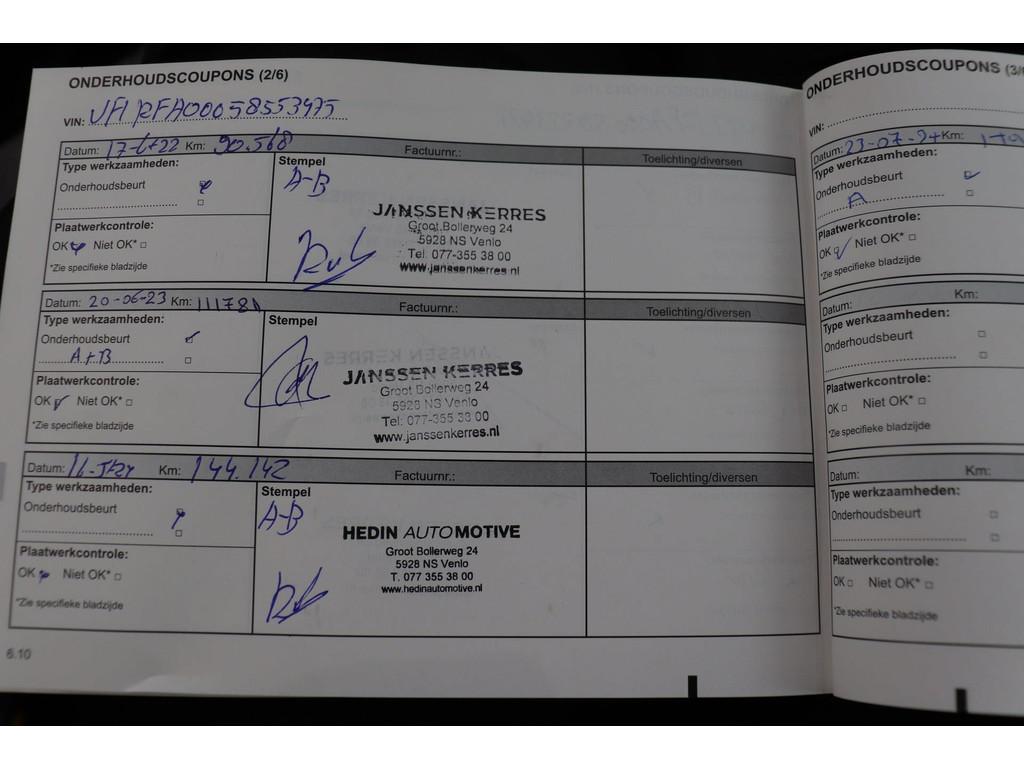 ONDERHOUDSCOUPONS (2/6)
VIN: VF1RFA00058553475
Datum: 17-6-22 Km: 90.568 Factuurnr.: Toelichting/diversen
Type werkzaamheden:
Onderhoudsbeurt
Plaatwerkcontrole:
OK Niet OK*
*Zie specifieke bladzijde
Stempel
A-B
JANSSEN KERRES
Groot Bollerweg 24
5928 NS Venlo
Tel: 077-355 38 00
www.janssenkerres.nl
Datum: 20-06-23 Km: 111781 Factuurnr.: Toelichting/diversen
Type werkzaamheden:
Onderhoudsbeurt
A+B
Plaatwerkcontrole:
OK Niet OK*
*Zie specifieke bladzijde
Stempel
JANSSEN KERRES
Groot Bollerweg 24
5928 NS Venlo
Tel: 077-355 38 00
www.janssenkerres.nl
Datum: Km: 144.142 Factuurnr.: Toelichting/diversen
Type werkzaamheden:
Onderhoudsbeurt
Plaatwerkcontrole:
OK Niet OK*
*Zie specifieke bladzijde
Stempel
A-B
HEDIN AUTOMOTIVE
Groot Bollerweg 24
5928 NS Venlo
T. 077 355 38 00
www.hedinautomotive.nl
6.10
ONDERHOUDSCOUPONS (3/6
VIN:
Datum: 23-07-24 Km:
Type werkzaamheden:
Onderhoudsbeurt
A
Plaatwerkcontrole:
OK Niet OK*
*Zie specifieke bladzijde
Datum: Km:
Type werkzaamheden:
Onderhoudsbeurt
Plaatwerkcontrole:
OK Niet OK*
*Zie specifieke bladzijde
Datum: Km:
Type werkzaamheden:
Onderhoudsbeurt
Plaatwerkcontrole:
OK Niet OK*
*Zie specifieke bladzijde